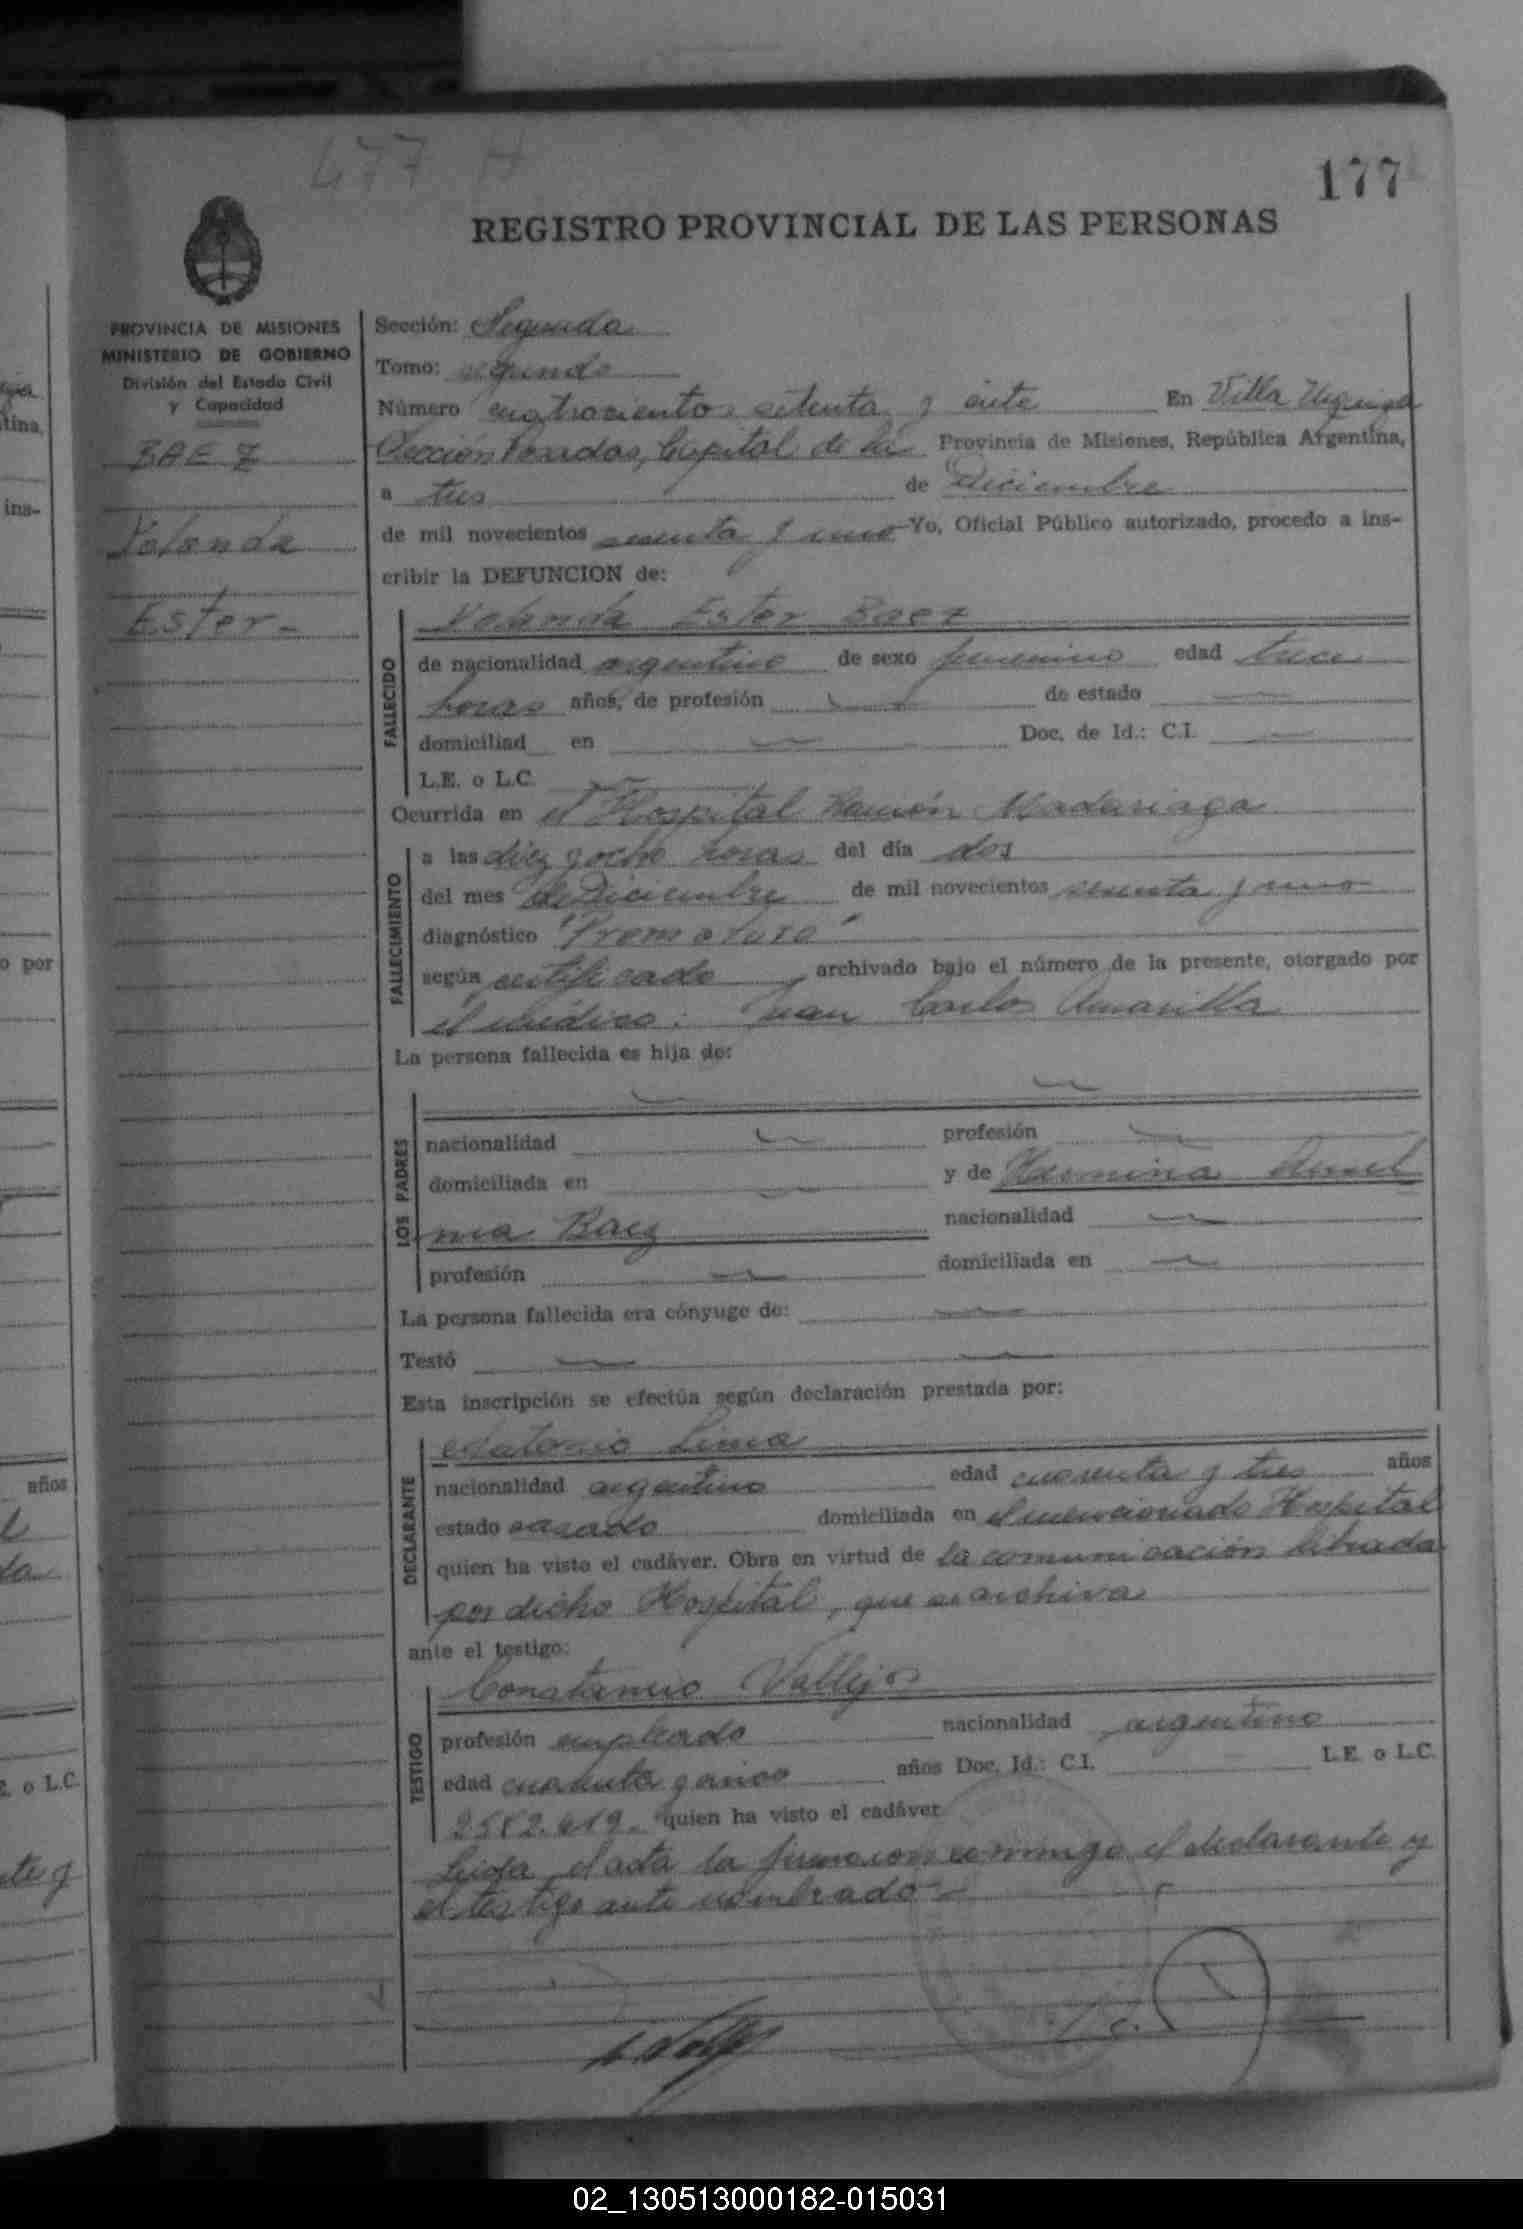 477 H
177
REGISTRO PROVINCIAL DE LAS PERSONAS
PROVINCIA DE MISIONES
MINISTERIO DE GOBIERNO
División del Estado Civil
y Capacidad
BAEZ
Yolanda
Ester-
Sección: Segunda
Tomo: segundo
Número cuatrocientos setenta y siete En Villa Urquiza
Sección Posadas, Capital de la Provincia de Misiones, República Argentina,
a tres de Diciembre
de mil novecientos sesenta y uno Yo, Oficial Público autorizado, procedo a ins-
cribir la DEFUNCION de:
FALLECIDO
Yolanda Ester Baez
de nacionalidad argentino de sexo femenino edad trece
horas años, de profesión de estado
domiciliad en Doc. de Id.: C.I.
L.E. o L.C.
Ocurrida en el Hospital Ramón Madariaga
FALLECIMIENTO
a las diez y ocho horas del día dos
del mes de Diciembre de mil novecientos sesenta y uno
diagnóstico "Prematuro"
según certificado archivado bajo el número de la presente, otorgado por
el médico: Juan Carlos Amarilla
La persona fallecida es hija de:
LOS PADRES
nacionalidad profesión
domiciliada en y de Herminia Ansel
ma Baez nacionalidad
profesión domiciliada en
La persona fallecida era cónyuge de:
Testó
Esta inscripción se efectúa según declaración prestada por:
DECLARANTE
Antonio Lima
nacionalidad argentino edad cuarenta y tres años
estado casado domiciliada en el mencionado Hospital
quien ha visto el cadáver. Obra en virtud de la comunicación librada
por dicho Hospital, que se archiva
ante el testigo:
TESTIGO
Constancio Vallejos
profesión empleado nacionalidad argentino
edad cuarenta y cinco años Doc. Id.: C.I. L.E. o L.C.
2582.619.- quien ha visto el cadáver
Leída el acta la firman conmigo el declarante y
el testigo ante nombrado-
ina,
ins-
o por
años
E. o L.C.
02_130513000182-015031